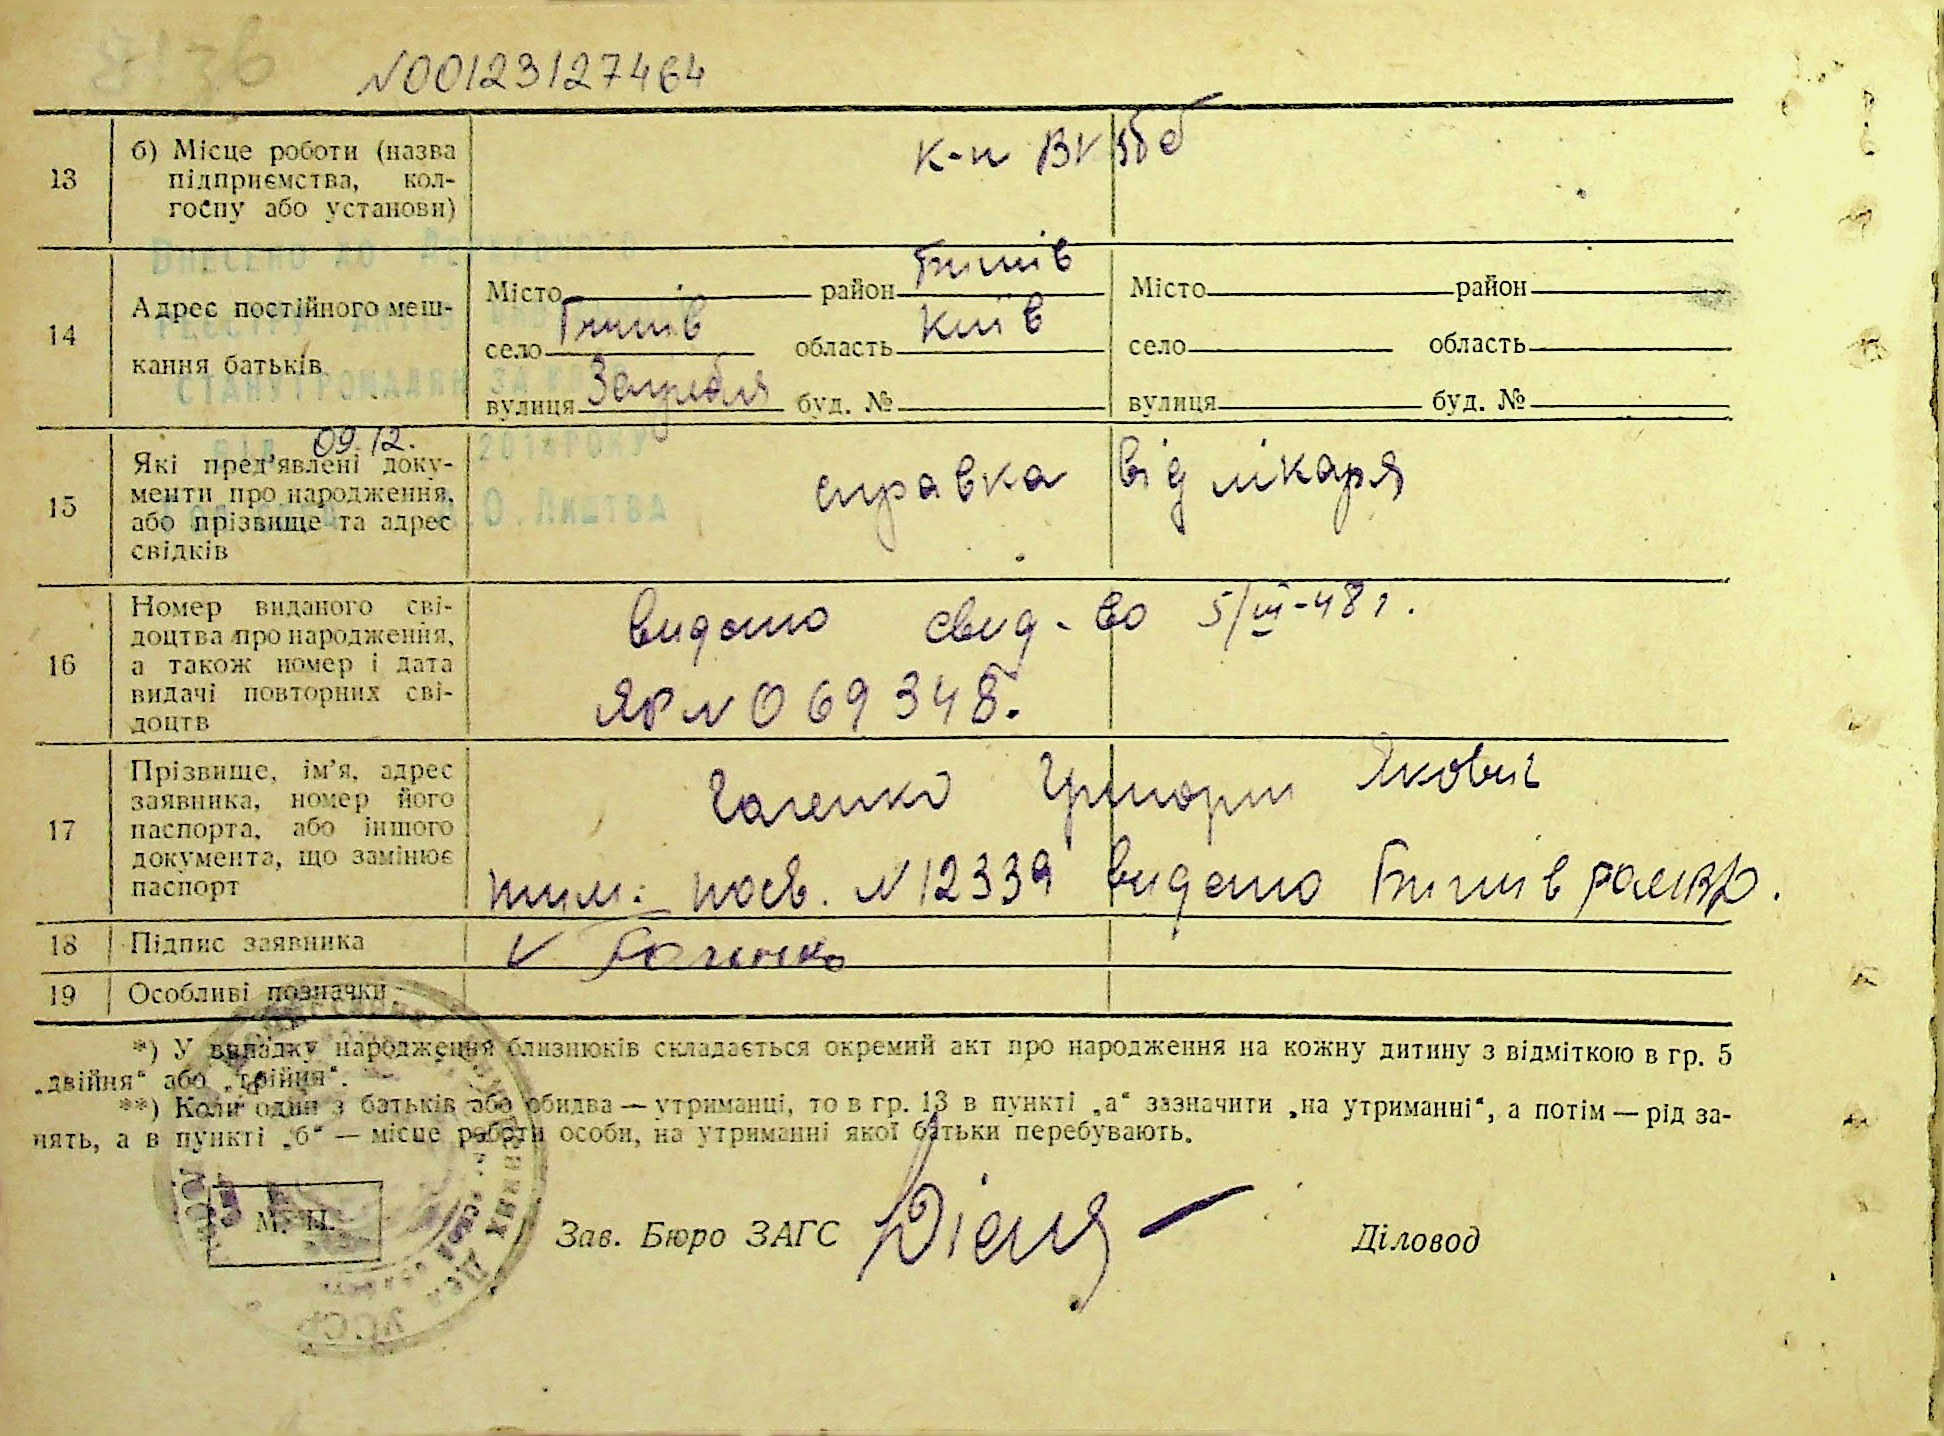 N00123127464
13
б) Місце роботи (назва
підприємства, кол-
госпу або установи)
к-п
14
Адрес постійного меш-
кання батьків
Місто район Бишів
село Бишів область Київ
вулиця Загребля буд. №
Місто район
село область
вулиця буд. №
Внесено до Державного
реєстру актів
стану громадян за №
від 09.12. 2014 року
О. Лиштва
15
Які пред'явлені доку-
менти про народження,
або прізвище та адрес
свідків
справка від лікаря
16
Номер виданого сві-
доцтва про народження,
а також номер і дата
видачі повторних сві-
доцтв
видано свид-во 5/III-48 г.
ЯР N 069348.
17
Прізвище, ім'я, адрес
заявника, номер його
паспорта, або іншого
документа, що замінює
паспорт
Галенко Григорій Якович
тим: посв. N 12339 видано Бишів
18
Підпис заявника
V Галенко
19
Особливі позначки
*) У випадку народження близнюків складається окремий акт про народження на кожну дитину з відміткою в гр. 5
„двійня“ або „трійня“.
**) Коли один з батьків або обидва — утриманці, то в гр. 13 в пункті „а“ зазначити „на утриманні“, а потім — рід за-
нять, а в пункті „б“ — місце роботи особи, на утриманні якої батьки перебувають.
М. П.
Зав. Бюро ЗАГС
Діловод